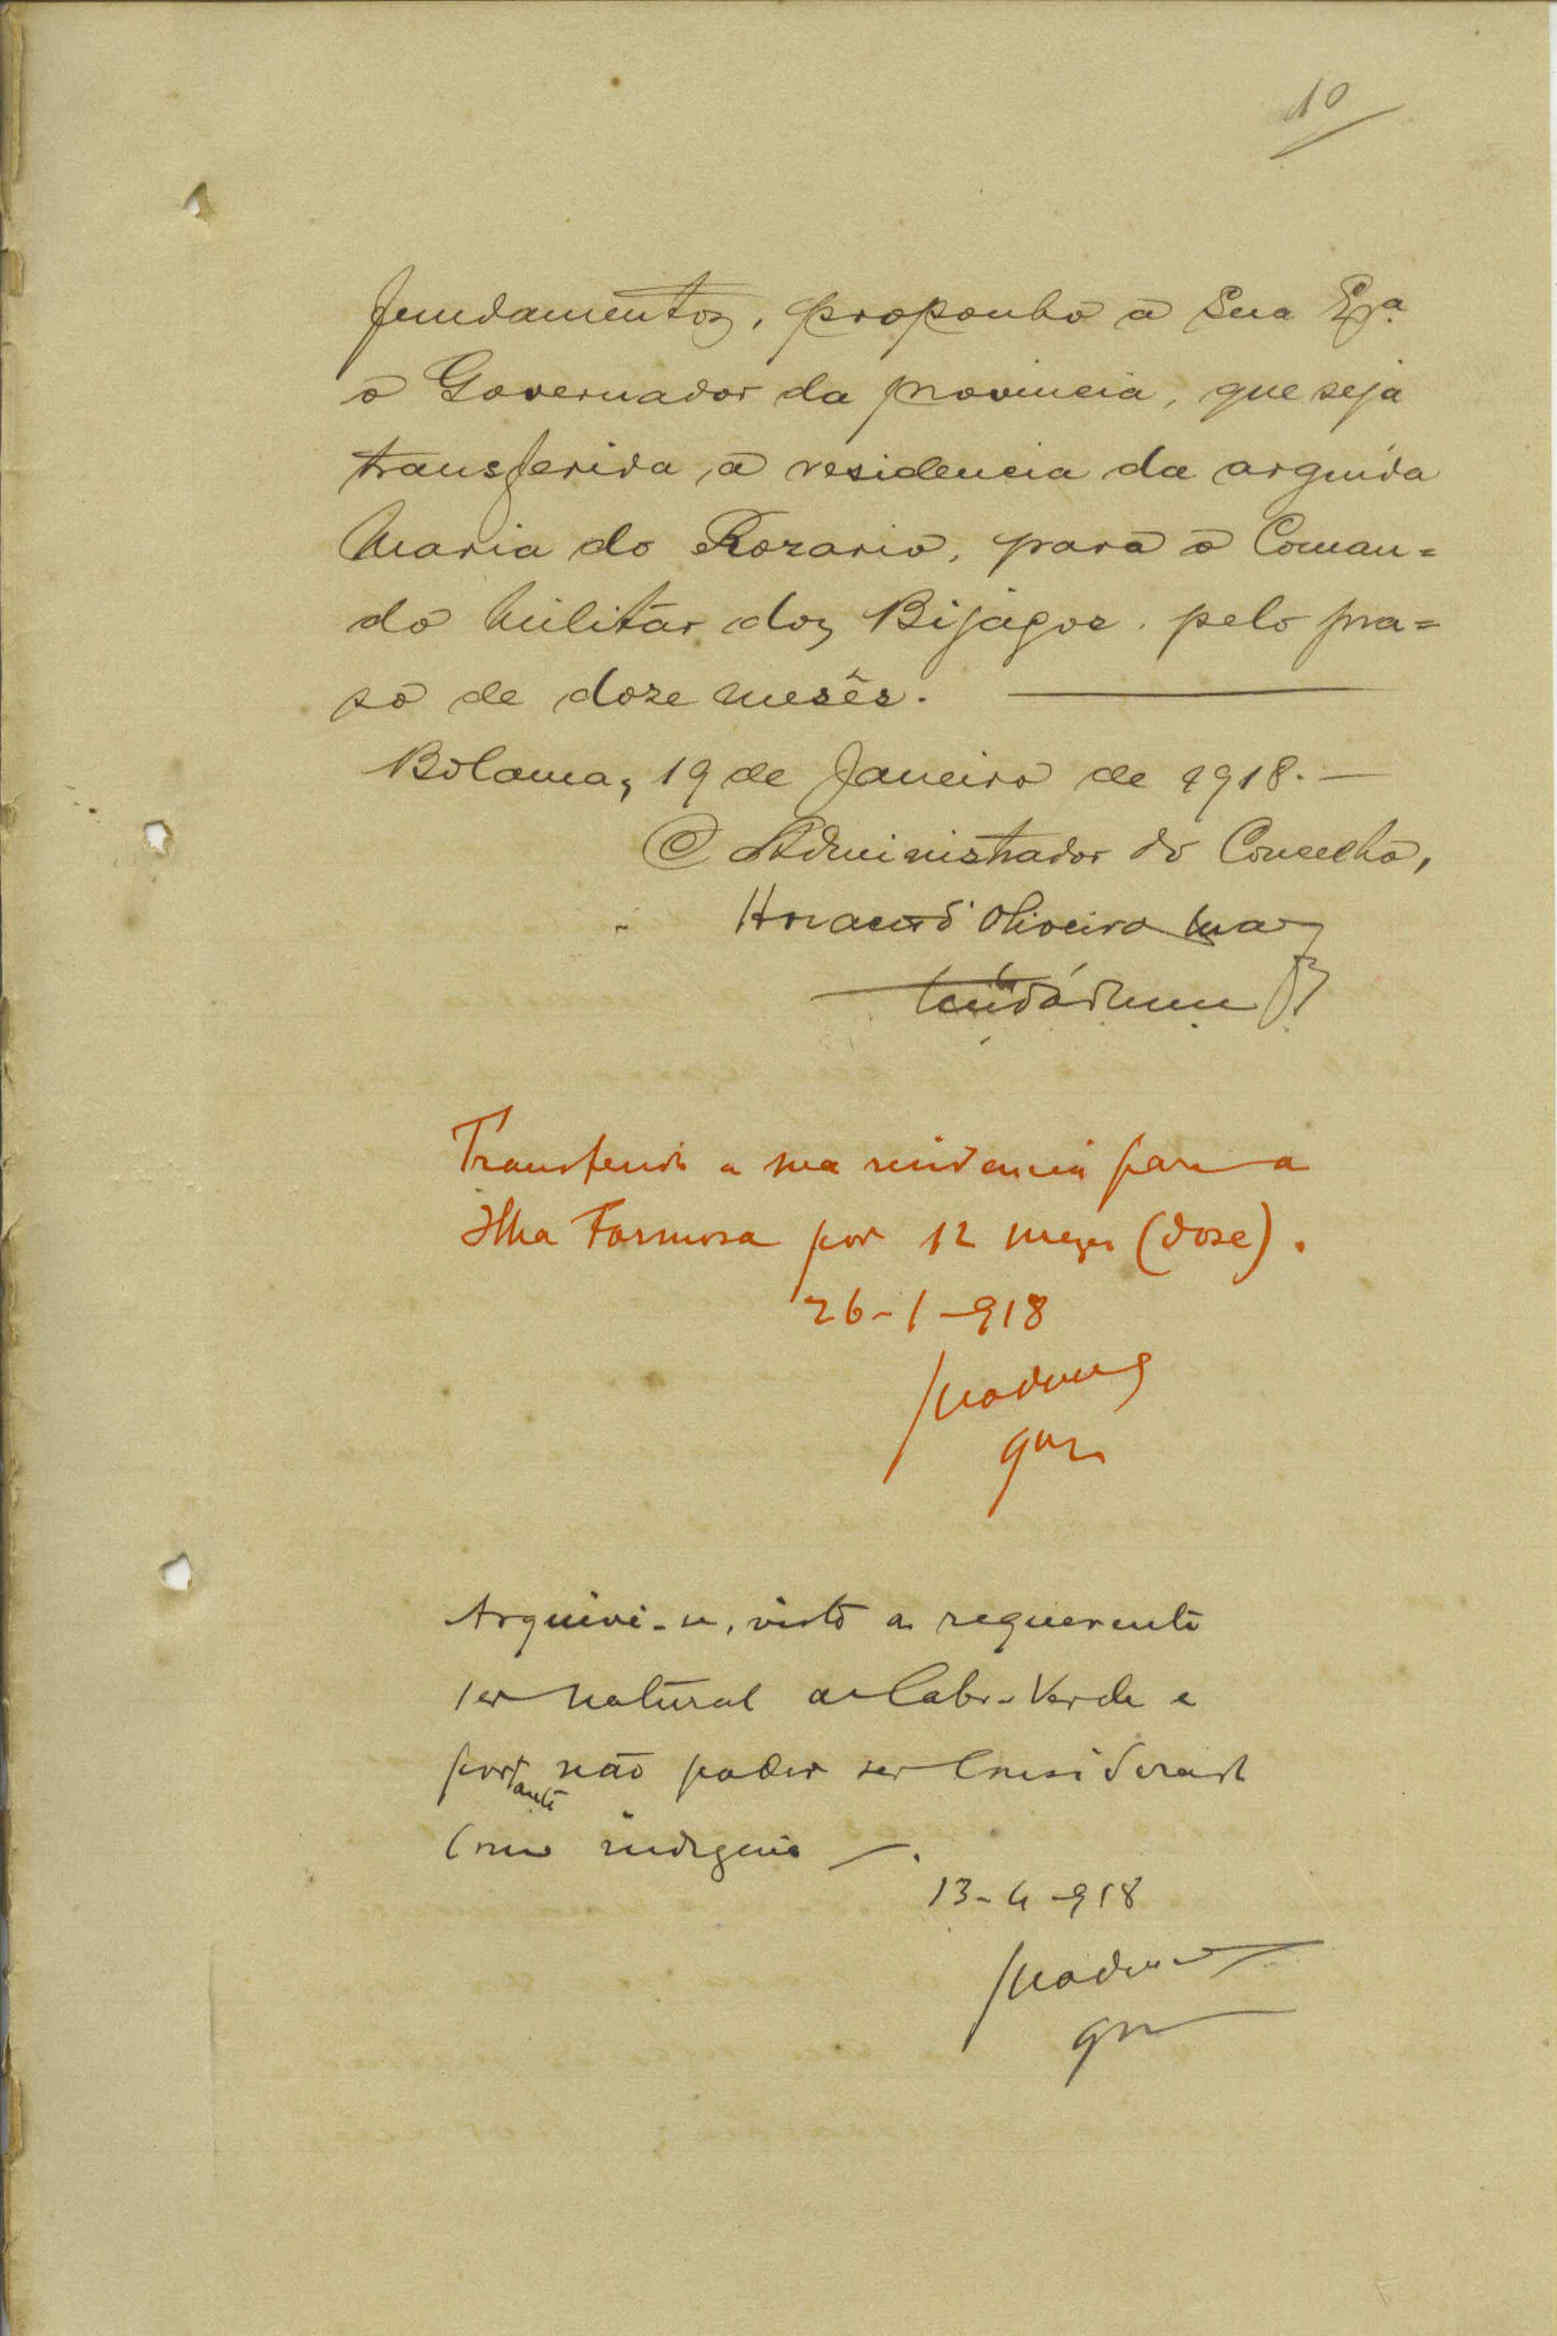 10
fundamentos, proponho a Sua Exª
o Governador da provincia, que seja
transferida a residencia da arguida
Maria do Rozario, para o Coman=
do Militar dos Bijagos pelo pra=
so de doze mesês.
Bolama, 19 de Janeiro de 1918.—
O Administrador do Concelho,
Oliveira
Transferida a sua residencia para a
Ilha Formosa por 12 mezes (doze).
26-1-918
Arquive-se, visto a requerente
ser natural de Cabo-Verde e
portanto não poder ser considerada
como indigena —.
13-4-918